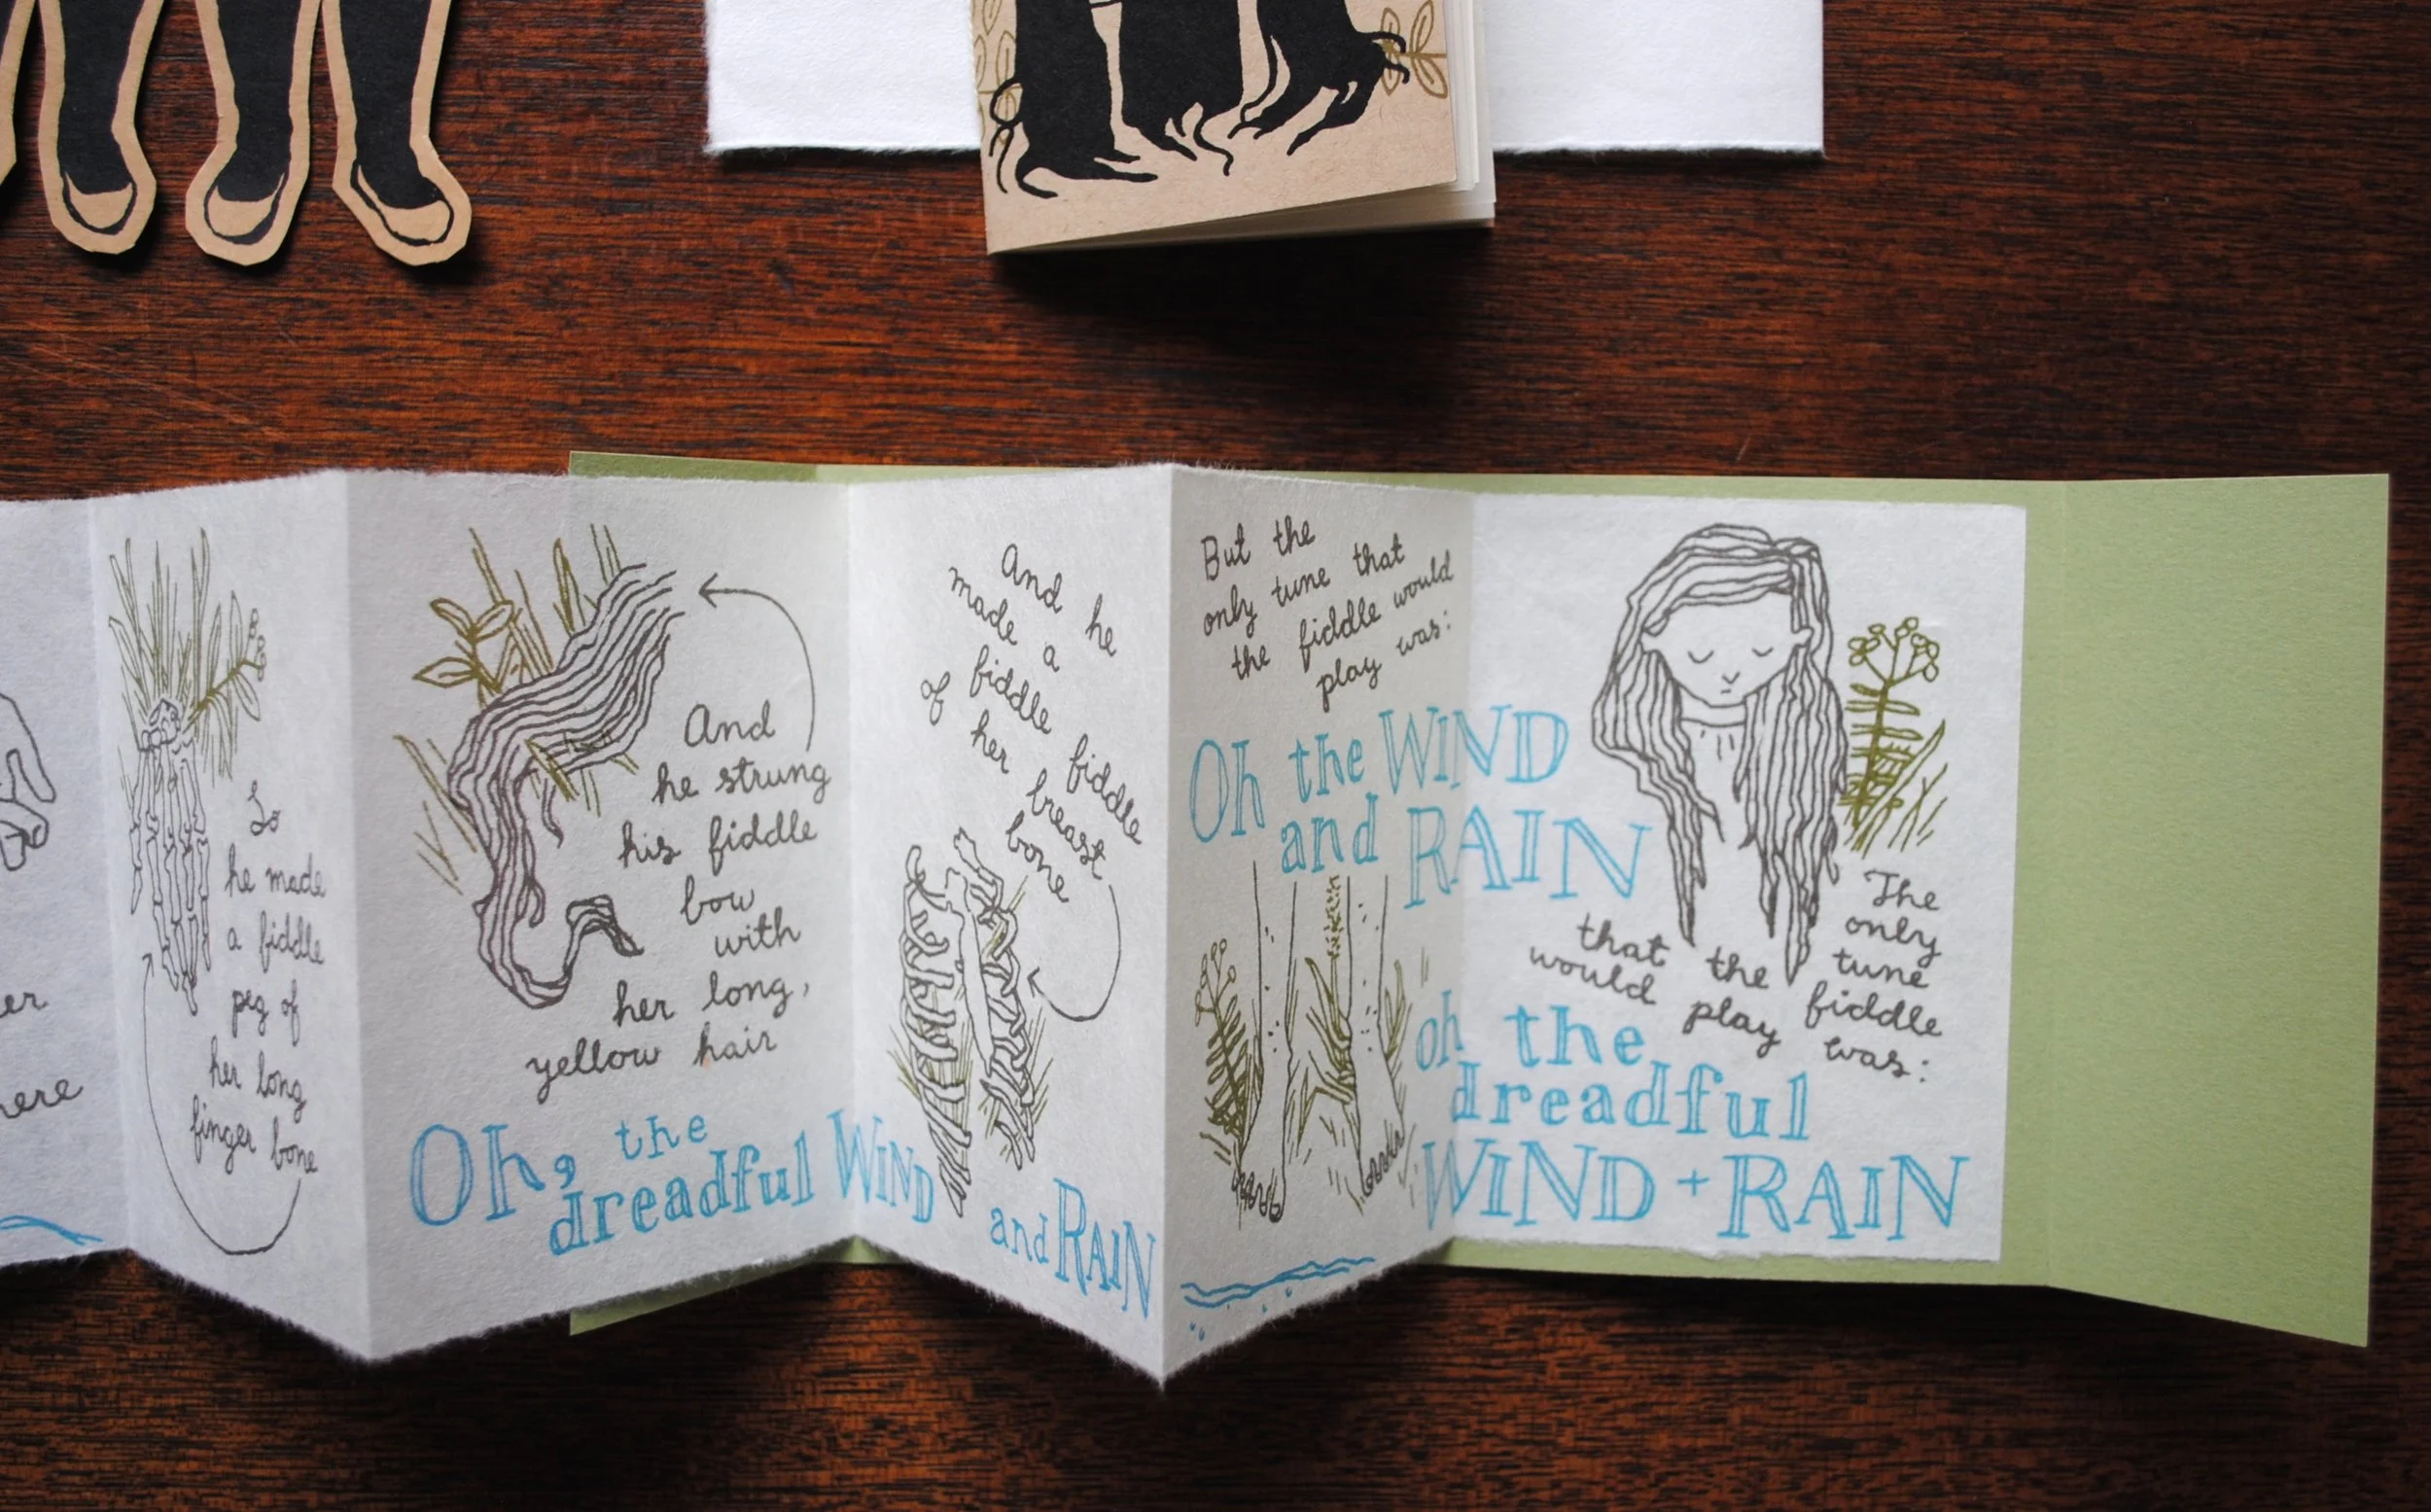 So
he made
a fiddle
peg of
her long
finger bone
And
he strung
his fiddle
bow
with
her long,
yellow hair
Oh, the
dreadful WIND
and RAIN
And he
made a
fiddle fiddle
of her breast
bone
But the
only tune that
the fiddle would
play was:
Oh the WIND
and RAIN
The
only
tune
that the fiddle
would play was:
oh the
dreadful
WIND + RAIN